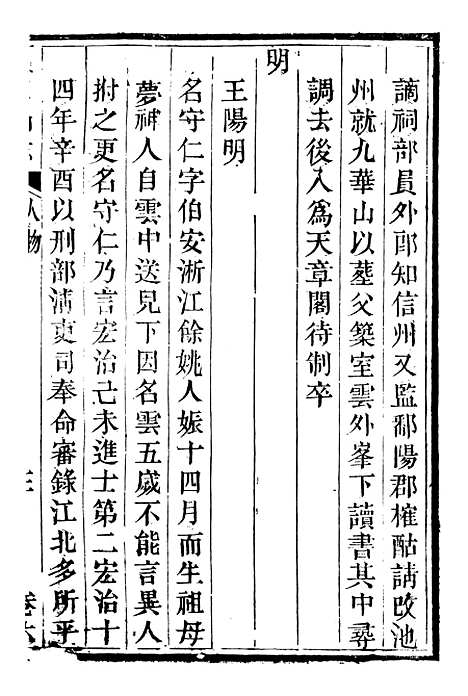 謫祠部員外郎知信州又監鄱陽郡榷酤請改池
州就九華山以葬父築室雲外峯下讀書其中尋
調去後入為天章閣待制卒
明
王陽明
名守仁字伯安淅江餘姚人娠十四月而生祖母
夢神人自雲中送兒下因名雲五歲不能言異人
拊之更名守仁乃言宏治己未進士第二宏治十
四年辛酉以刑部淸吏司奉命審錄江北多所平
人物
三
卷六